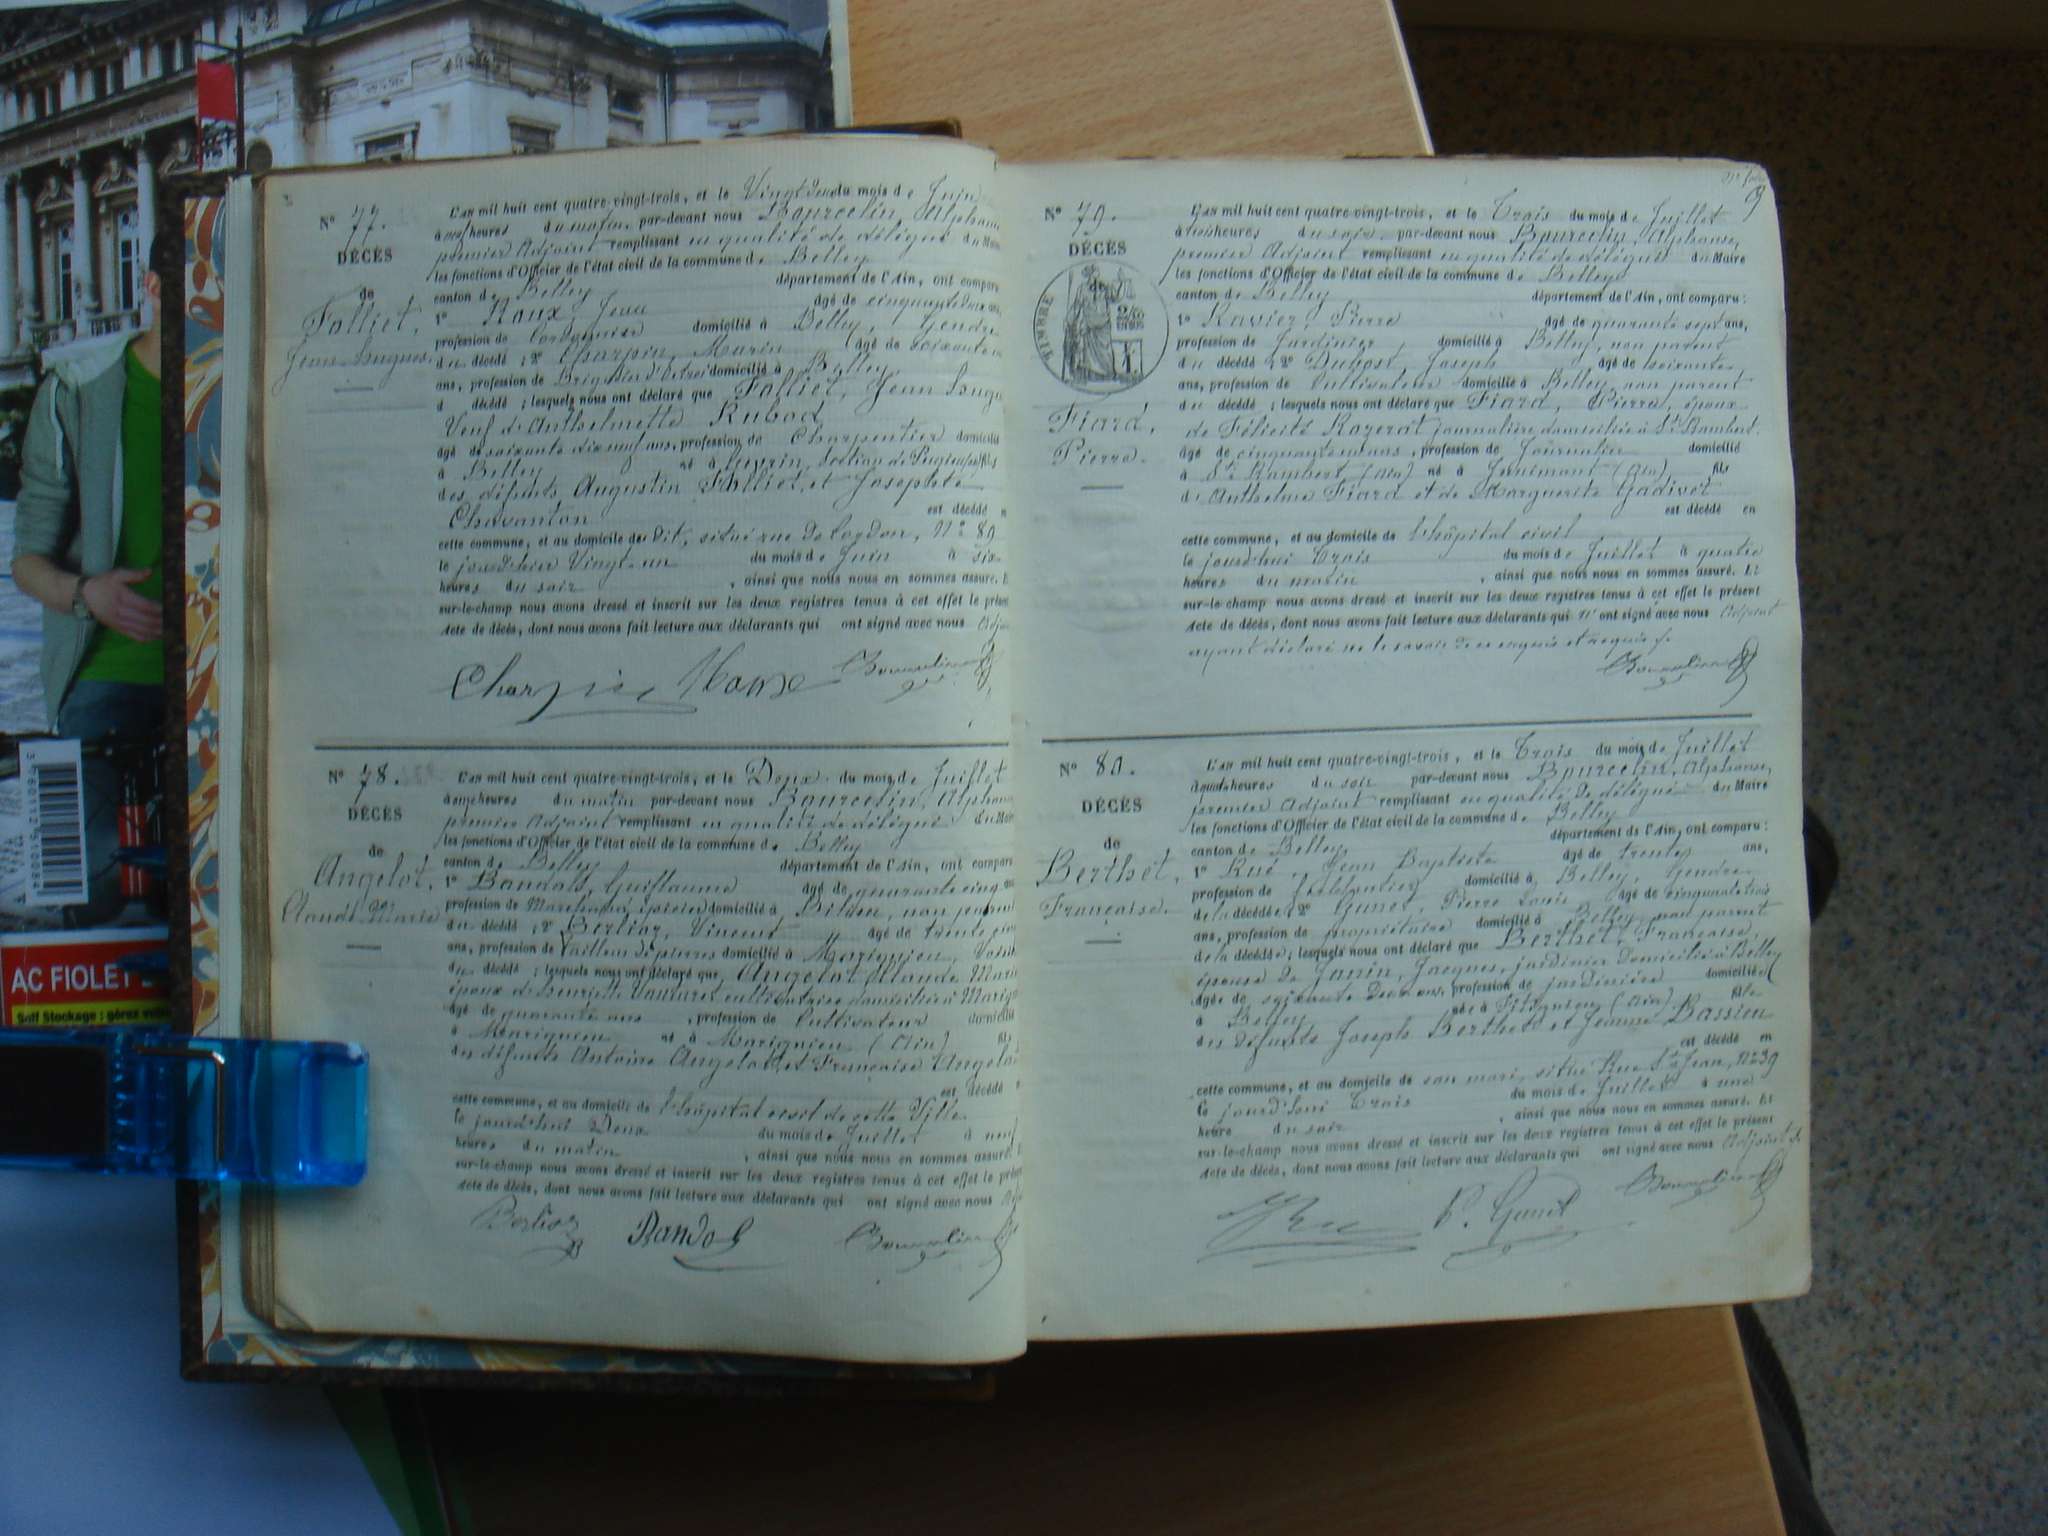 N° 77.
DÉCÈS
de
Folliet,
Jean Hugues.
L'an mil huit cent quatre-vingt-trois, et le Vingt deux du mois de Juin
à heures du matin par-devant nous Bourcelin, Alphonse
premier Adjoint remplissant en qualité de délégué du Maire
les fonctions d'Officier de l'état civil de la commune de Belley
canton de Belley département de l'Ain, ont comparu
1° Roux Jean âgé de cinquante deux ans,
profession de Cordonnier domicilié à Belley, Gendre
du décédé ; 2° Charpin, Marin âgé de soixante
ans, profession de Brigadier d'octroi domicilié à Belley
d décédé ; lesquels nous ont déclaré que Folliet, Jean Hugu
Veuf d'Anthelmette Rubod
âgé de soixante dix neuf ans, profession de Charpentier domicilié
à Belley né à section de Pugieu fils
des défunts Augustin Folliet, et Josephte
Chavanton est décédé
cette commune, et au domicile de dit, situé rue de Cordon, N° 89
le jour d'hier Vingt un du mois de Juin à six
heures du soir , ainsi que nous nous en sommes assuré. E
sur-le-champ nous avons dressé et inscrit sur les deux registres tenus à cet effet le prése
Acte de décès, dont nous avons fait lecture aux déclarants qui ont signé avec nous Adjoi
Charpin Roux Bourcelin
N° 78.
DÉCÈS
de
Angelot,
Claude Marie
L'an mil huit cent quatre-vingt-trois, et le Deux du mois de Juillet
à onze heures du matin par-devant nous Bourcelin, Alphons
premier Adjoint remplissant en qualité de délégué du Maire
les fonctions d'Officier de l'état civil de la commune de Belley
canton de Belley département de l'Ain, ont comparu
1° Guillaume âgé de quarante cinq ans
profession de Marchand épicier domicilié à non paren
du décédé ; 2° Berlioz, Vincent âgé de trente
ans, profession de Tailleur de pierres domicilié à Marignieu, Voisin
du décédé ; lesquels nous ont déclaré que Angelot Claude Marie
époux de Henriette cultivatrice domiciliée à Marign
âgé de quarante ans , profession de Cultivateur domicilié
à Marignieu né à Marignieu (Ain) fils
des défunts Antoine Angelot, et Françoise Angelot
est décédé
cette commune, et au domicile de l'hôpital civil de cette Ville
le jourd'hui Deux du mois de Juillet à neuf
heures du matin , ainsi que nous nous en sommes assuré. E
sur-le-champ nous avons dressé et inscrit sur les deux registres tenus à cet effet le prése
Acte de décès, dont nous avons fait lecture aux déclarants qui ont signé avec nous
Berlioz Bourcelin
N° 79.
DÉCÈS
de
TIMBRE
Fiard,
Pierre.
L'an mil huit cent quatre-vingt-trois, et le Trois du mois de Juillet
à trois heures du soir par-devant nous Bourcelin, Alphonse,
premier Adjoint remplissant en qualité de délégué du Maire
les fonctions d'Officier de l'état civil de la commune de Belley
canton de Belley département de l'Ain, ont comparu :
1° Ravier, Pierre âgé de quarante sept ans,
profession de Jardinier domicilié à Belley, non parent
du décédé ; 2° Dubost Joseph âgé de soixante
ans, profession de Cultivateur domicilié à Belley, non parent
du décédé ; lesquels nous ont déclaré que Fiard, Pierre, époux
de Félicité Rozerat, journalière, domiciliée à St Rambert.
âgé de cinquante ans, profession de Journalier domicilié
à St Rambert (Ain) né à (Ain) fils
d'Anthelme Fiard et de Marguerite Gadivet
est décédé en
cette commune, et au domicile de l'hôpital civil
le jourd'hui Trois du mois de Juillet à quatre
heures du matin , ainsi que nous nous en sommes assuré. Et
sur-le-champ nous avons dressé et inscrit sur les deux registres tenus à cet effet le présent
Acte de décès, dont nous avons fait lecture aux déclarants qui n'ont signé avec nous Adjoint
ayant déclaré ne le savoir de ce enquis et requis
Bourcelin
N° 80.
DÉCÈS
de
Berthet,
Françoise.
L'an mil huit cent quatre-vingt-trois, et le Trois du mois de Juillet
à quatre heures du soir par-devant nous Bourcelin, Alphonse,
premier Adjoint remplissant en qualité de délégué du Maire
les fonctions d'Officier de l'état civil de la commune de Belley
canton de Belley département de l'Ain, ont comparu :
1° Rué, Jean Baptiste âgé de trente ans,
profession de domicilié à Belley, Gendre
de la décédée ; 2° Gunet, Pierre Louis âgé de cinquante trois
ans, profession de propriétaire domicilié à Belley, non parent
de la décédée ; lesquels nous ont déclaré que Berthet, Françoise,
épouse de Janin, Jacques, jardinier domicilié à Belley
âgée de soixante deux ans, profession de jardinière domiciliée
à Belley née à (Ain) fille
des défunts Joseph Berthet et Jeanne Bassieu
est décédé en
cette commune, et au domicile de son mari, sitné Rue St Jean, N° 39
le jourd'hui Trois du mois de Juillet à une
heure du soir , ainsi que nous nous en sommes assuré. Et
sur-le-champ nous avons dressé et inscrit sur les deux registres tenus à cet effet le présent
Acte de décès, dont nous avons fait lecture aux déclarants qui ont signé avec nous Adjoint
P. Gunet Bourcelin
AC FIOLET
Self Stockage : gérez votre